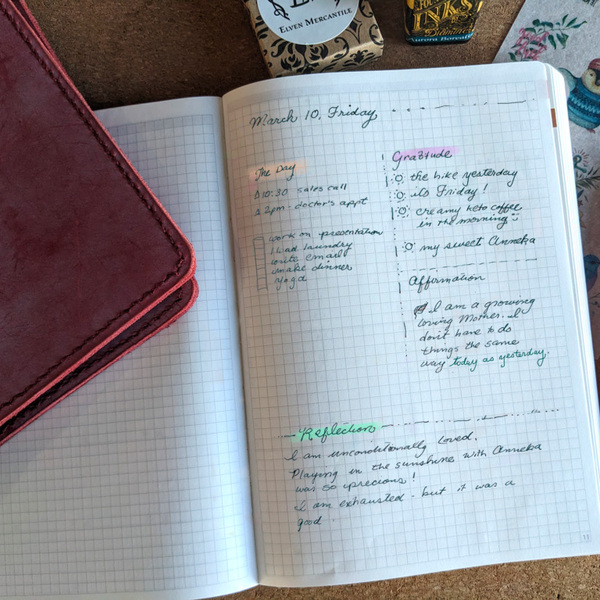 ELVEN MERCANTILE
INKS
March 10, Friday
The Day
10:30 sales call
2pm - doctor's appt
work on presentation
1 load laundry
write email
make dinner
yoga
Gratitude
the hike yesterday
its Friday!
creamy keto coffee
in the morning
my sweet Anneka
Affirmation
I am a growing
loving Mother. I
don't have to do
things the same
way today as yesterday.
Reflection
I am unconditionally loved.
Playing in the sunshine with Anneka
was so precious!
I am exhausted - but it was a
good